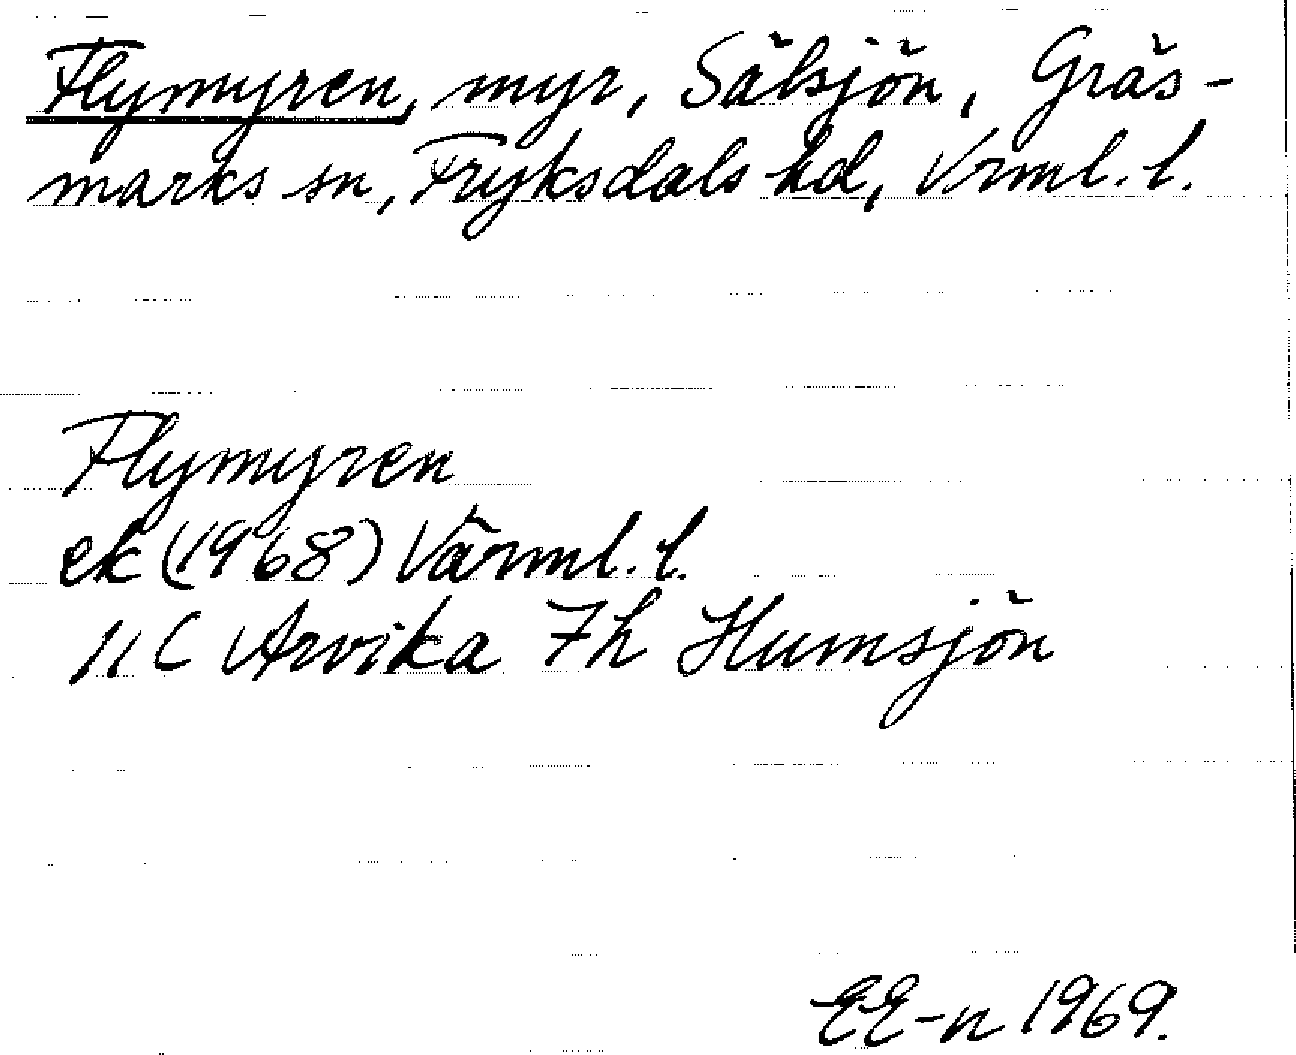 Flymyren, myr, Sälsjön, Gräs-
marks sn, Fryksdals hd, Vrml. l.
Flymyren
ek (1968) Värml. l.
11 C Arvika 7h Humsjön
EE-n 1969.